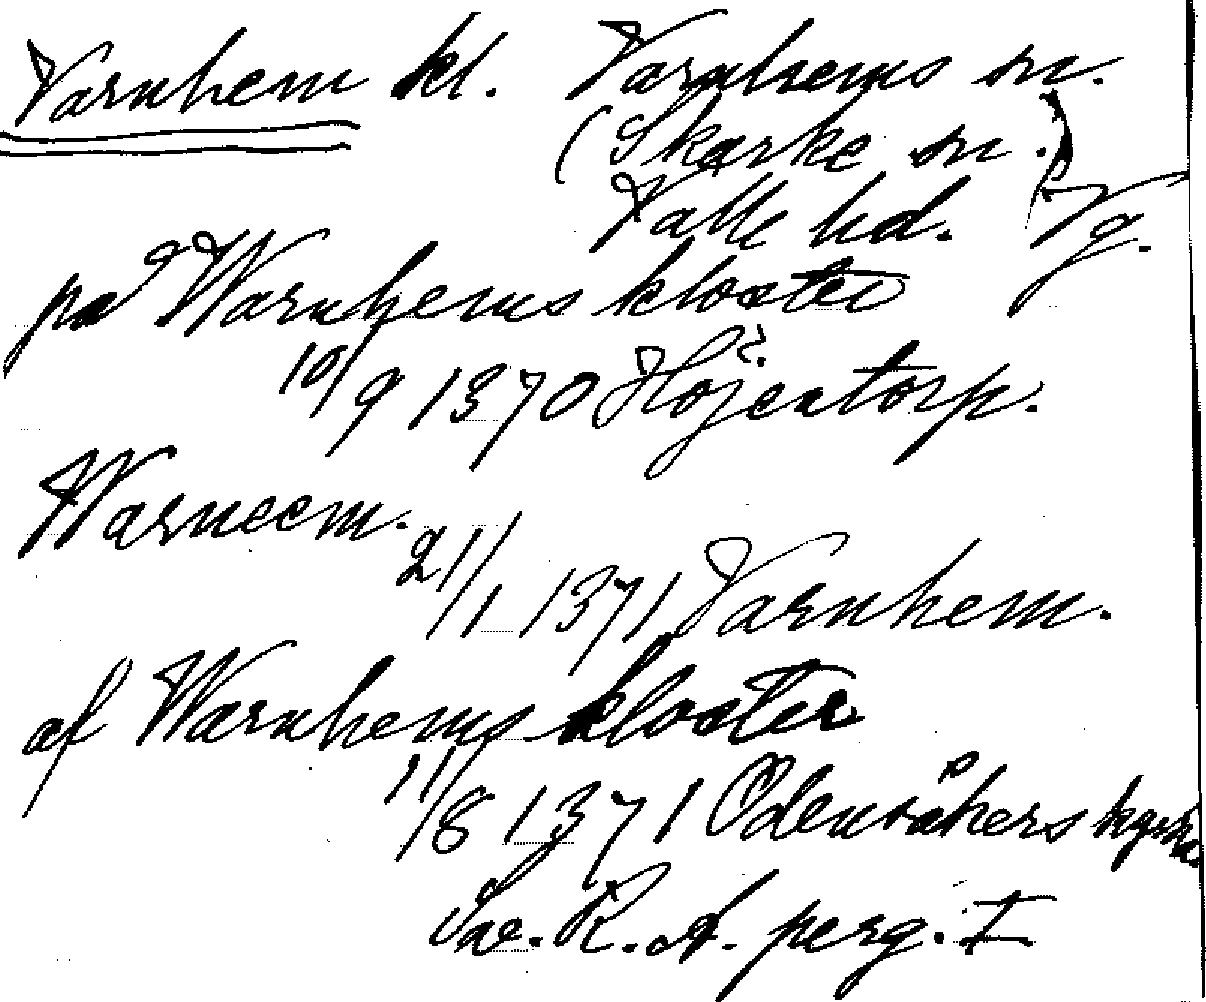 Varnhem kl. Varnhems sn.
(Skarke sn.)
Valle hd. Vg.
på Warnhems kloster
10/9 1370 Höjentorp.
Warneem.
21/1 1371 Varnhem.
af Warnhems kloster
11/8 1371 Ödenåkers kyrka
Sv. R. A. perg. I